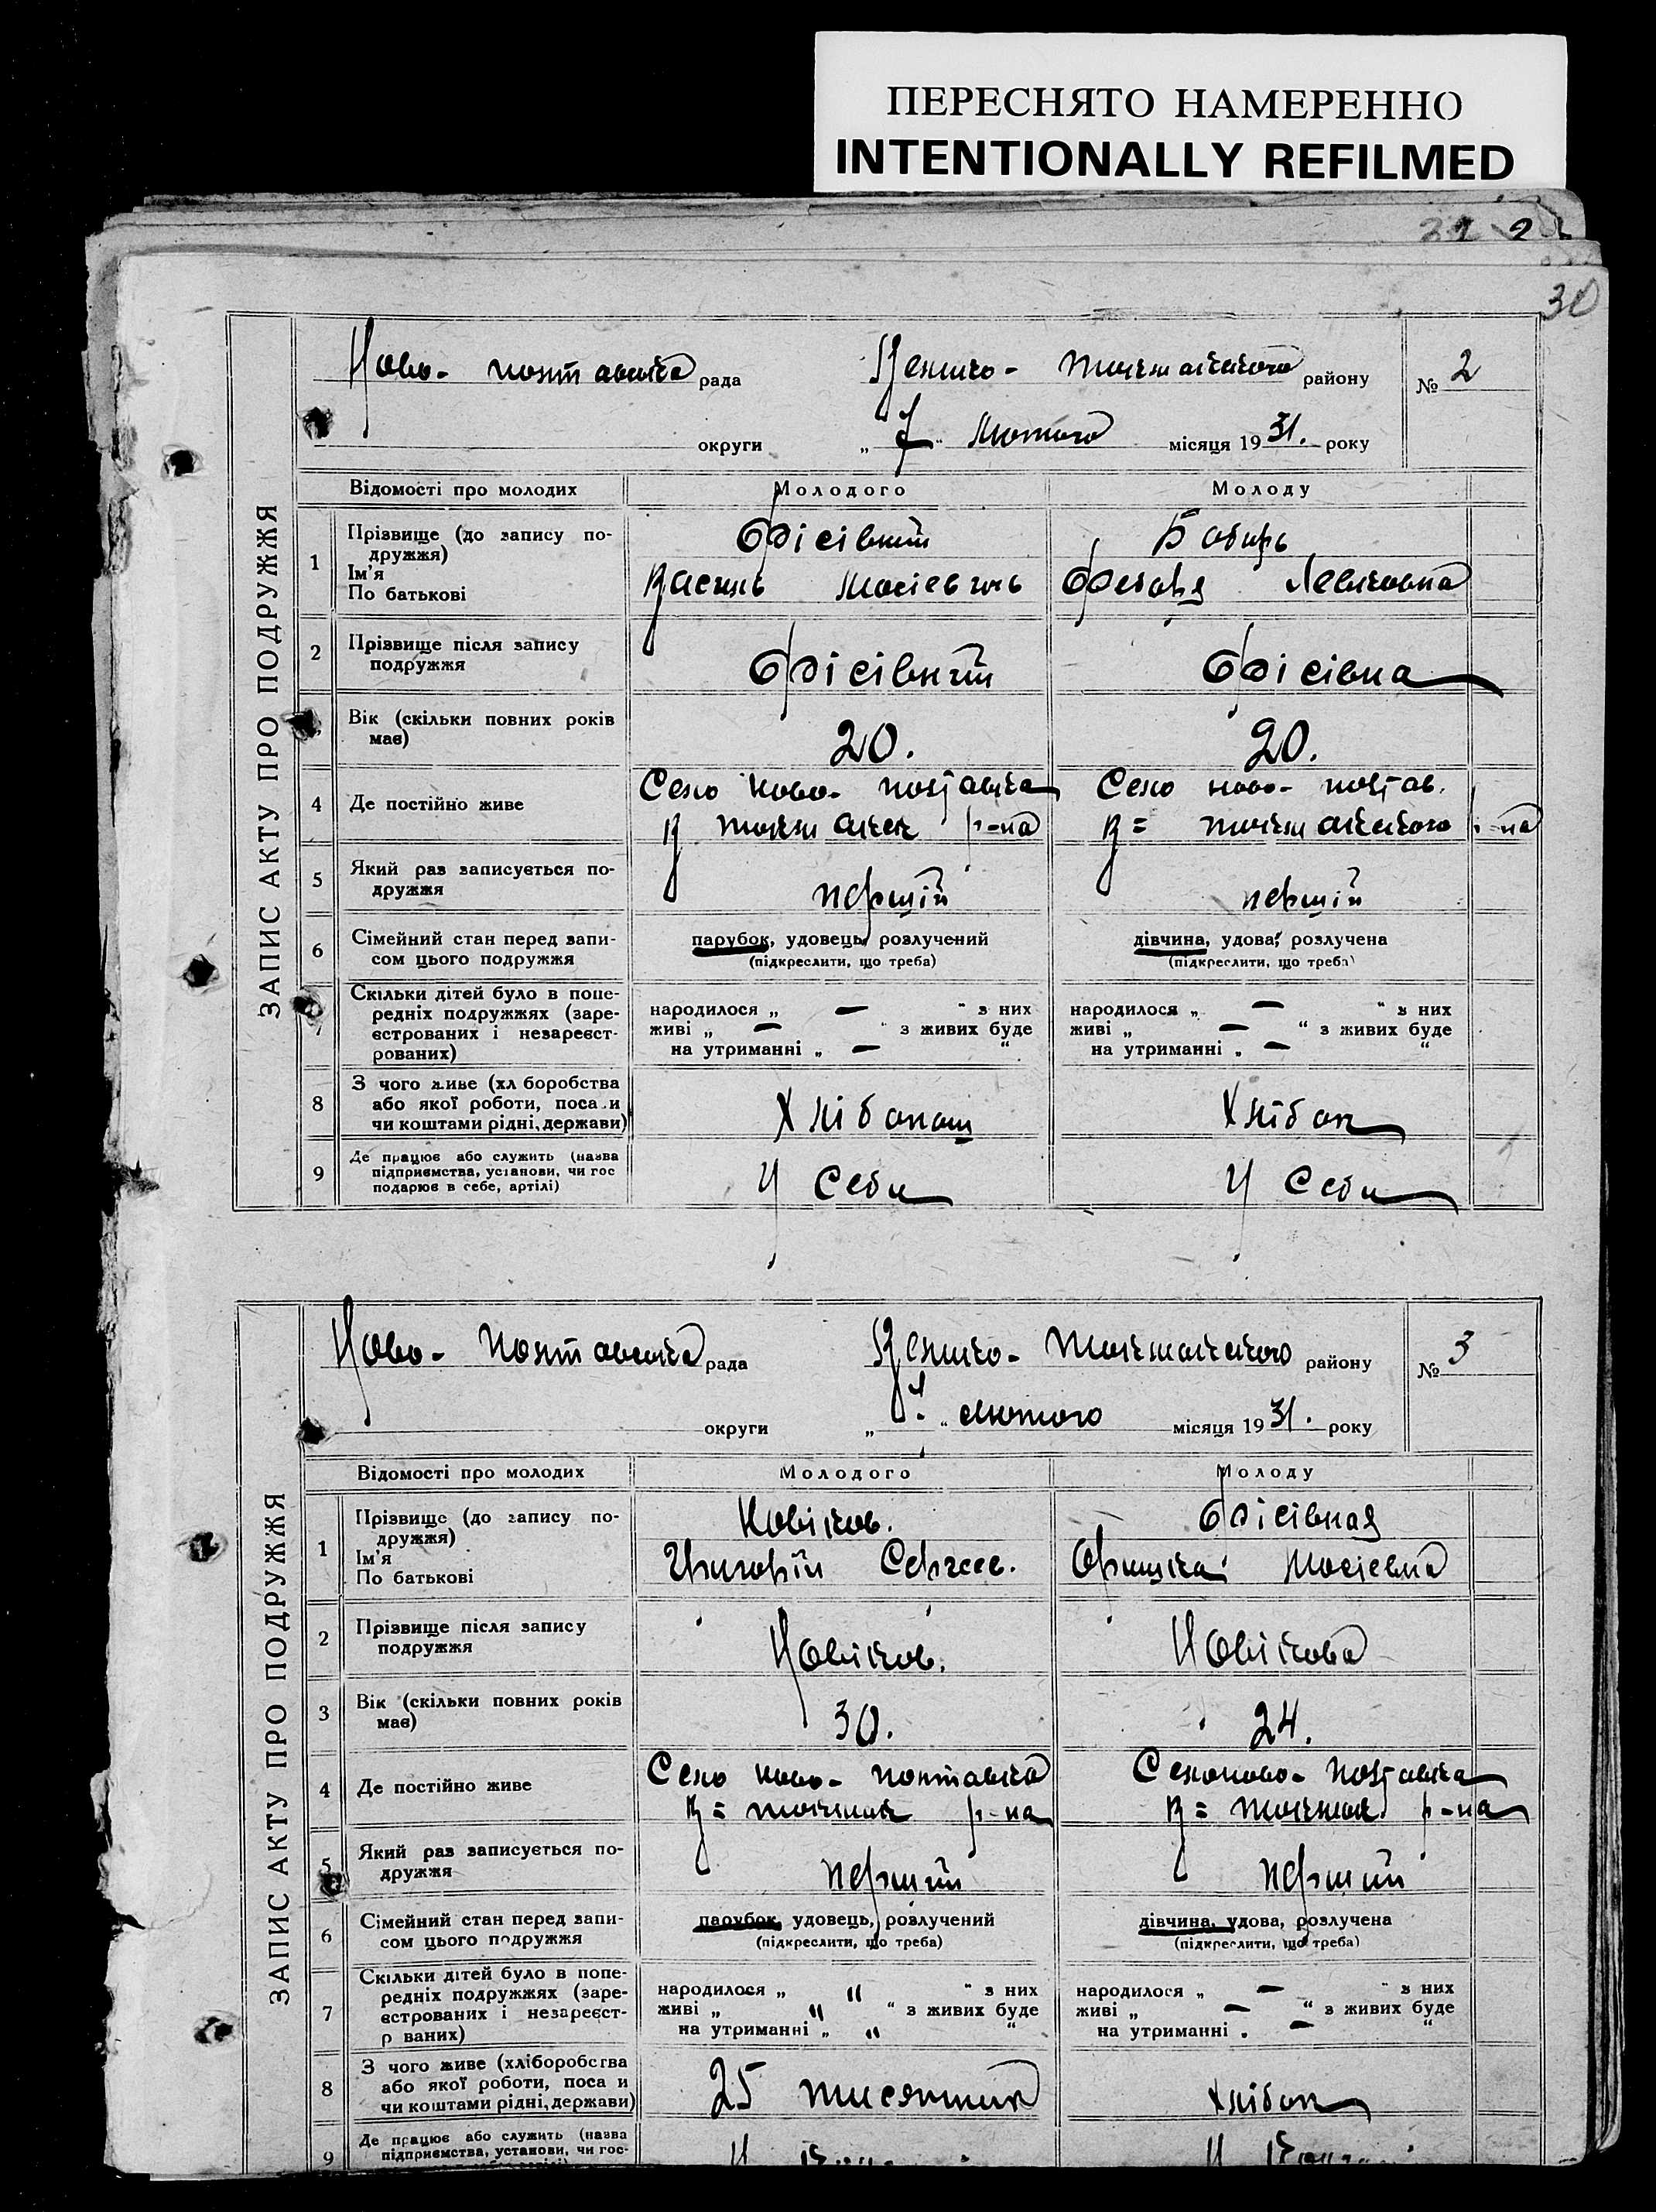 ПЕРЕСНЯТО НАМЕРЕННО
INTENTIONALLY REFILMED
30
ЗАПИС АКТУ ПРО ПОДРУЖЖЯ
Ново- полтавська рада Велико- Токмакського району № 2
округи „7“ Лютого місяця 1931. року
Відомості про молодих Молодого Молоду
1 Прізвище (до запису по-
дружжя)
Ім'я
По батькові
Фісівний
Василь Мосієвичь
Бобирь
Фекла Левковна
2 Прізвище після запису
подружжя
Фісівний
Фісівна
Вік (скільки повних років
має)
20.
20.
4 Де постійно живе
Село Ново- полтавка
В токмакск р-на
Село ново- полтав.
В= токмакського р-на
5 Який раз записується по-
дружжя
перший
перший
6 Сімейний стан перед запи-
сом цього подружжя
парубок, удовець, розлучений
(підкреслити, що треба)
дівчина, удова, розлучена
(підкреслити, що треба)
7 Скільки дітей було в попе-
редніх подружжях (заре-
єстрованих і незареєст-
рованих)
народилося „ — “ з них
живі „ — “ з живих буде
на утриманні „ — “
народилося „ — “ з них
живі „ — “ з живих буде
на утриманні „ — “
8 З чого живе (хл боробства
або якої роботи, поса и
чи коштами рідні, держави)
Хлібопаш
Хлібоп
9 Де працює або служить (назва
підприємства, установи, чи гос
подарює в себе, артілі)
У Себи
У Себи
ЗАПИС АКТУ ПРО ПОДРУЖЖЯ
Ново- Полтавська рада Велико- Токмакського району № 3
округи „ “ Лютого місяця 1931. року
Відомості про молодих Молодого Молоду
1 Прізвище (до запису по-
дружжя)
Ім'я
По батькові
Новіков.
Григорій Сергеев.
Фісівная
Оришка Мосієвна
2 Прізвище після запису
подружжя
Новіков.
Новікова
3 Вік (скільки повних років
має)
30.
24.
4 Де постійно живе
Село Ново- полтавка
В= токмак р-на
Село Ново- Полтавка
В= токмак р-на
5 Який раз записується по-
дружжя
перший
перший
6 Сімейний стан перед запи-
сом цього подружжя
парубок, удовець, розлучений
(підкреслити, що треба)
дівчина, удова, розлучена
(підкреслити, що треба)
7 Скільки дітей було в попе-
редніх подружжях (заре-
єстрованих і незареєст-
р ваних)
народилося „ “ з них
живі „ “ з живих буде
на утриманні „ “
народилося „ — “ з них
живі „ — “ з живих буде
на утриманні „ — “
8 З чого живе (хліборобства
або якої роботи, поса и
чи коштами рідні, держави)
25 тисяшник
хлібоп
9 Де працює або служить (назва
підприємства, установи, чи гос-